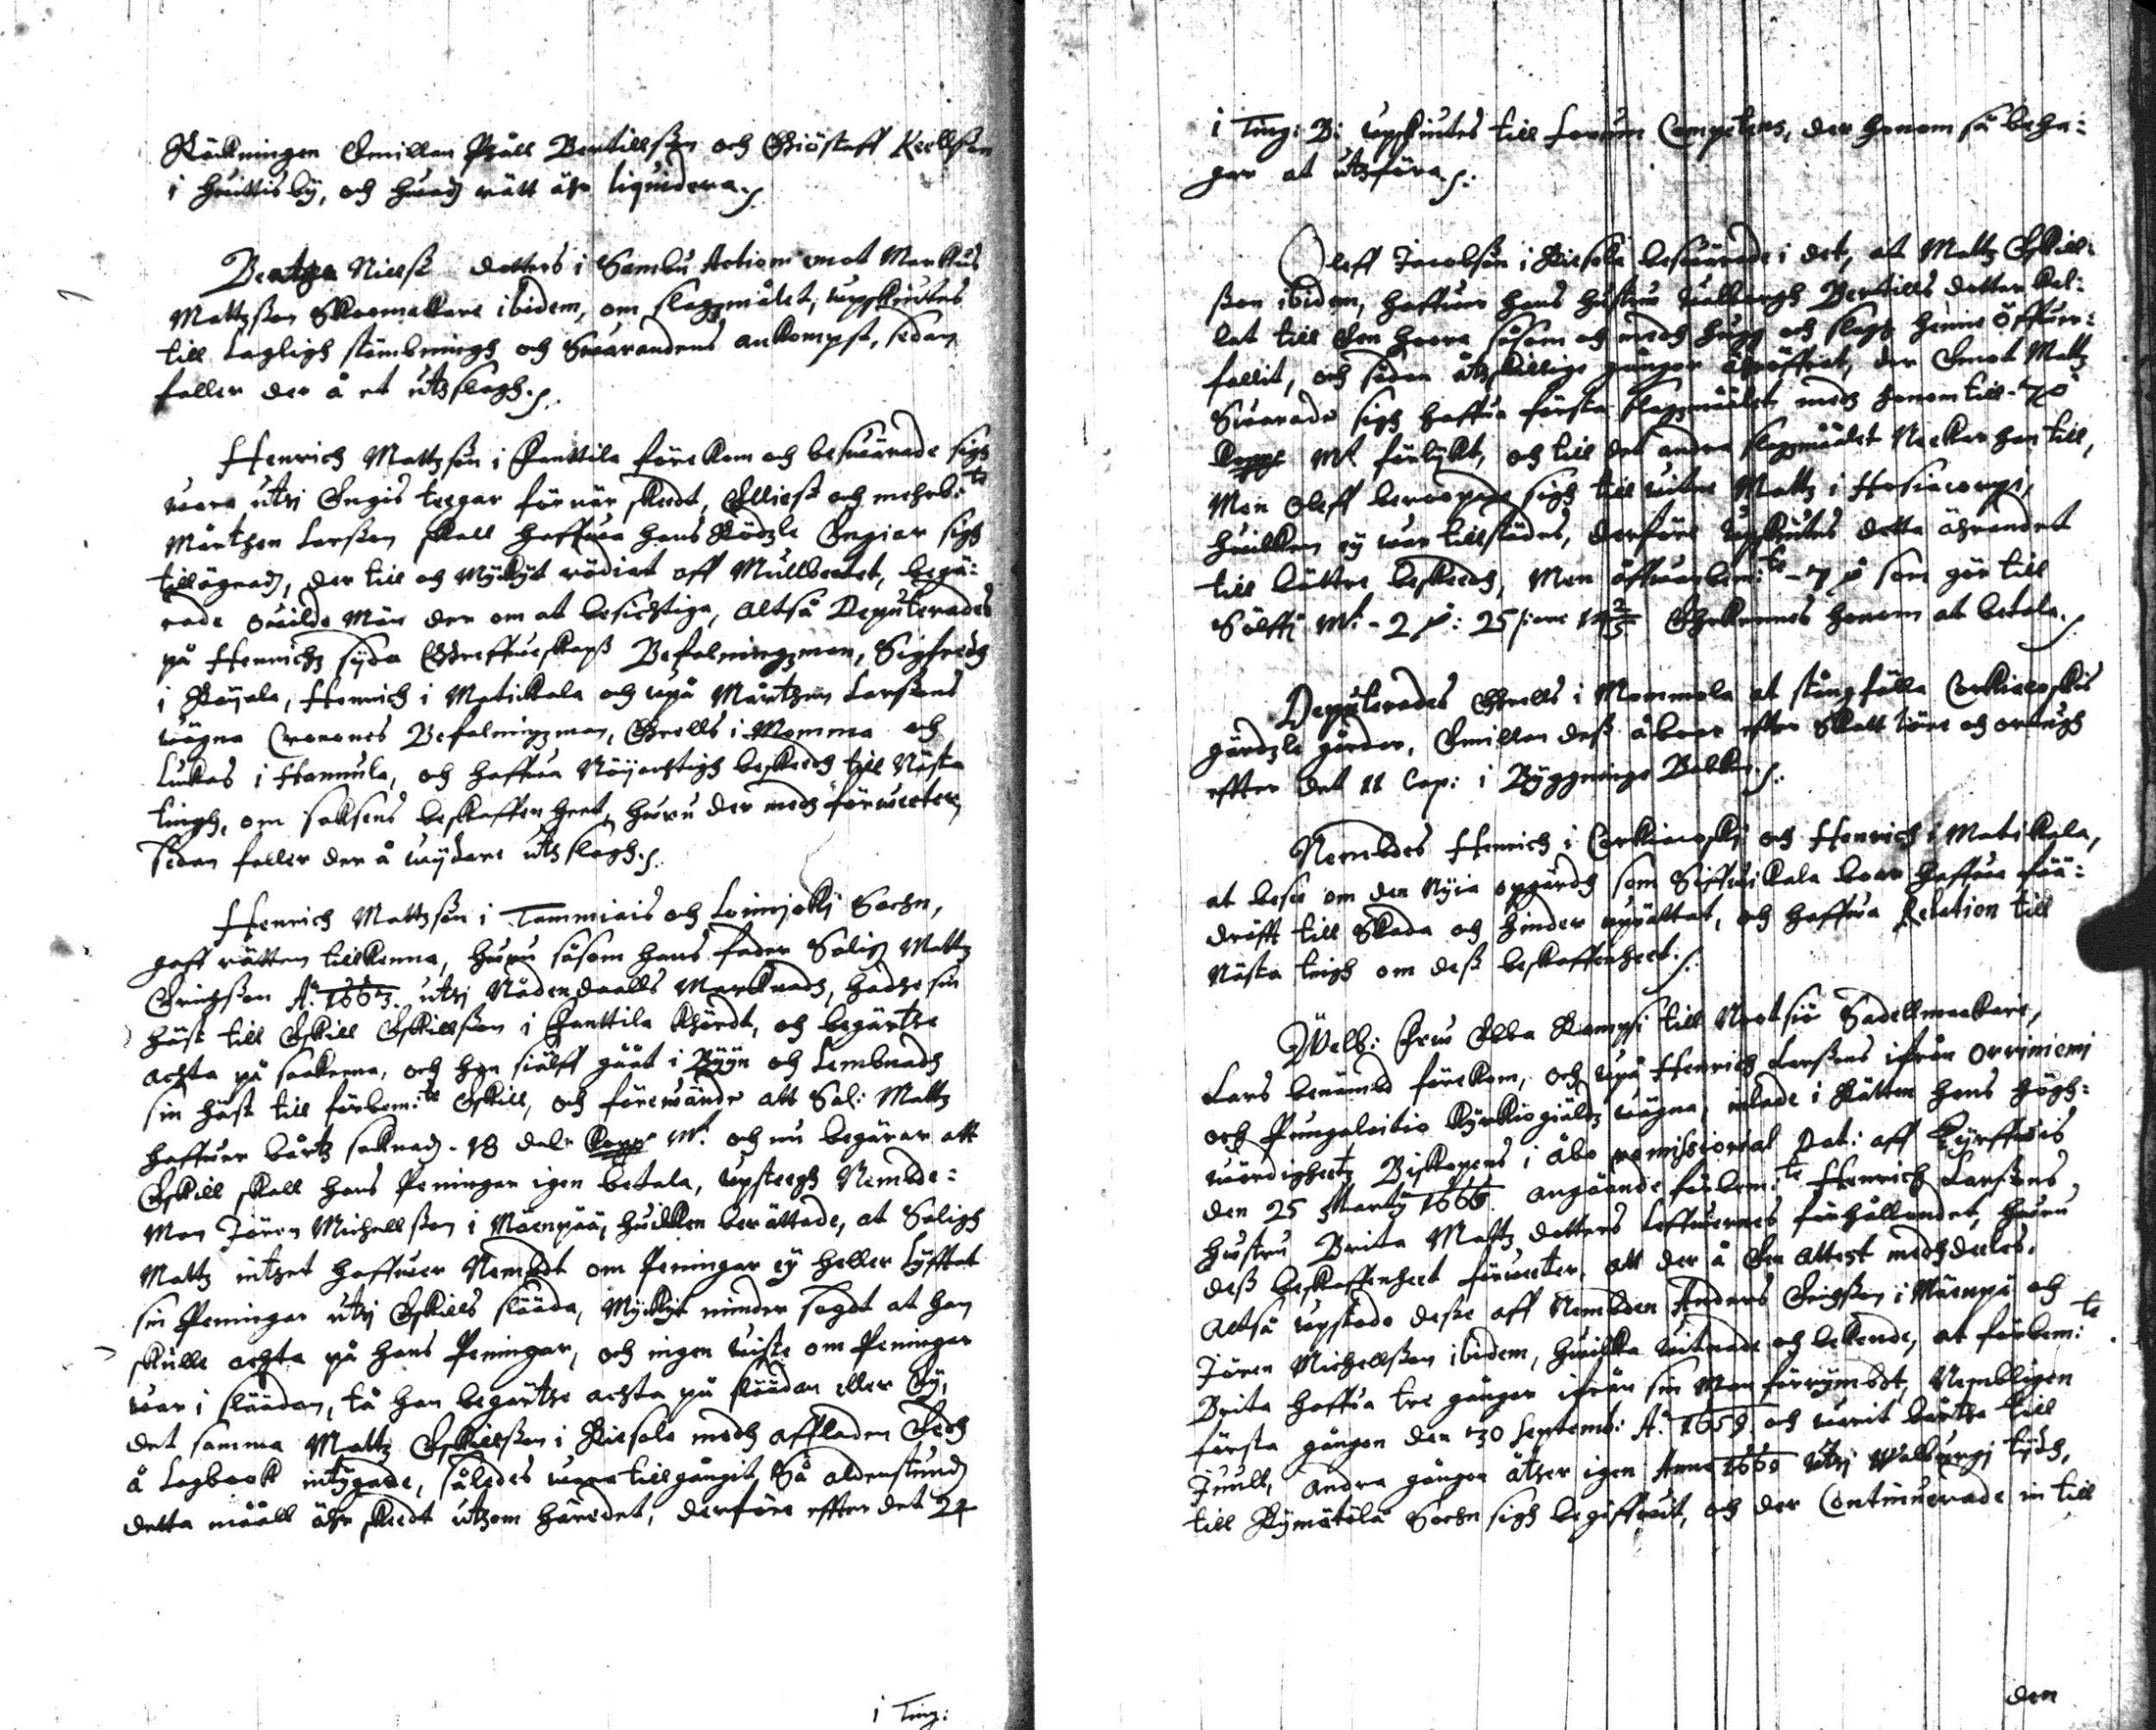 Räckningen Emillan Påll Bertillsson och Giöstaff Keellsson
i Huittis by, och huadh rätt ähr liquidera./.
Beatza Nielss dotters i Sambu Action emot Markus
Mattzsson Skoomakare ibidem, om slagzmålet, upskutes
till Lagligh stämbningh och Swarandens ankompst, sedan
faller der å et utslagh./.
Henrich Mattzson i Anttila förekom och beswärade sigh
vara utj Engis teegar förnär skeedt, Elliest och mehrb:te
Mårthen Larsson skall haffua hans Rödzle Engiar sigh
tillägnadh, der till och Myckyt rödiat aff Mullbeetet, begä-
rade Owilde Män der om at besichtiga, altså Deputerades
på Henrichz syda Greffueskapss Befalningzman, Sigfredh
i Raijala, Henrich i Matikala och upå Mårthen Larssons
wägna Cronones Befalningzman, Grells i Momma och
Lukas i Hannula, och haffua Nöijachtigh beskeedh till Nästa
tingh, om saksens beskaffenheet, huru der medh förweeter,
sedan faller der å wydare utslagh./.
Henrich Mattzson i Tammiais och Loimjoki Sochn,
gaff rätten tillkenna, huru såsom hans fader Saligh Mattz
Erichsson A:o 1663. utj Nådendaalls Marknadh, hadhe sin
häst till Eskill Eskillsson i Anttila Kiördt, och begärthe
achta på saakerna, och han siälff gåat i Byyn och Lembnadh
sin häst till förbem:te Eskill, och förewände att Sal: Mattz
haffuer bårtt saknadh. 18 dal:r Kopp:r M:t och nu begärar att
Eskill skall hans Peningar igen betala, upsteegh Nembde-
Man Jören Michellsson i Mäenpää, huilken berättade, at Saligh
Mattz inthet haffuer Nembdt om Peningar ey heller Lyfftat
sin Peningar utj Eskills slääda, Myckyt minder sagdt at han
skulle achta på hans Peningar, och ingen wiste om Peningar
war i släädan, tå han begärthe achta på släädan eller Ey,
det samma Mattz Eskillsson i Kiesala medh affladen Eedh
å Lagbook intygade, således wara tillgångit, Så aldenstundh
detta määll ähr skeedt uthom häredet, derföre effter det 24
i Ting:
i Ting: B: upskutes till Forum Competens, der honom så beha-
gar at utföra./.
Oleff Jacobson i Kiesala beswärade i det, at Mattz Eskill-
sson ibidem, haffuer hans hustru Walborgh Bertills dotter kal-
lat till Een hoora såsom och medh hugg och slagh henne öffuer-
fallit, och sedan åtskillige gångor der Emot Mattz
Swarade sigh haffua första slagzmåålet medh honom till
Kopp:r M:t förlykt, och till det andra slagzmåålet Neekar han till,
Men Oleff beroopade sigh till witne Mattz i
huilken ey war tillstädes, derföre upskutes detta ährandet
till bättre beskeedh, Men öffuanbem:te
Sölff: M:t Erkennes honom at betala./.
Deputerades Grells i Mommola at stångfälla Corkiacoskis
gärdzle gårder, Emillan dess åboar efter Skatt töre och örtugh
effter det 11 Cap: i Bygginge Balken./.
Nembdes Henrich i Corkiacoskj och Henrich i Matikala,
at besee om den Nyia opgårdh som Siffuikala boar haffua fää-
dräfft till Skada och hinder uprättat, och haffua Relation till
Nästa tingh om dess beskaffenheet./.
Welb: Frw Ebba Kampsi till Nootsiö Sadellmaakare,
Lars benämbd förekom, och upå Henrich Larssons ifrån Orriniemi
och Pungalaitio Kyrkiogiäldz wägna, inlade i Rätten hans högh-
wördigheetz Biskopens i åbo remissional Dat: aff Tyrffwis
den 25 Martij 1666. angåände förbem:te Henrich Larssons
hustru Brita Mattz dotters Leffuernes förhållandet, huru
dess beskaffenheet förweeter, att der å Een attest medhdeeles.
Altså upstodo desse aff Nembden Anders Erichsson i Mäenpä och
Jören Michellsson ibidem, huilka witnade och bekende, at förbem:te
Brita haffua tre gångor ifrån sin Man förrymbdt, Nembligen
första gången den 30 Septemb: A:o 1659. och warit bårtta till
Juull, andra gången åther igen Anno 1660 utj Walburgj tydh,
till Rymätälä Sochn sigh begiffuit, och der Continuerade in till
den